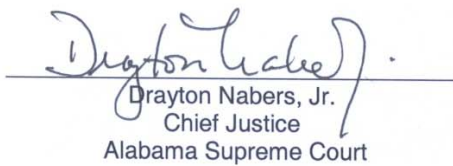 Drayton Nabers Jr.
Drayton Nabers, Jr.
Chief Justice
Alabama Supreme Court